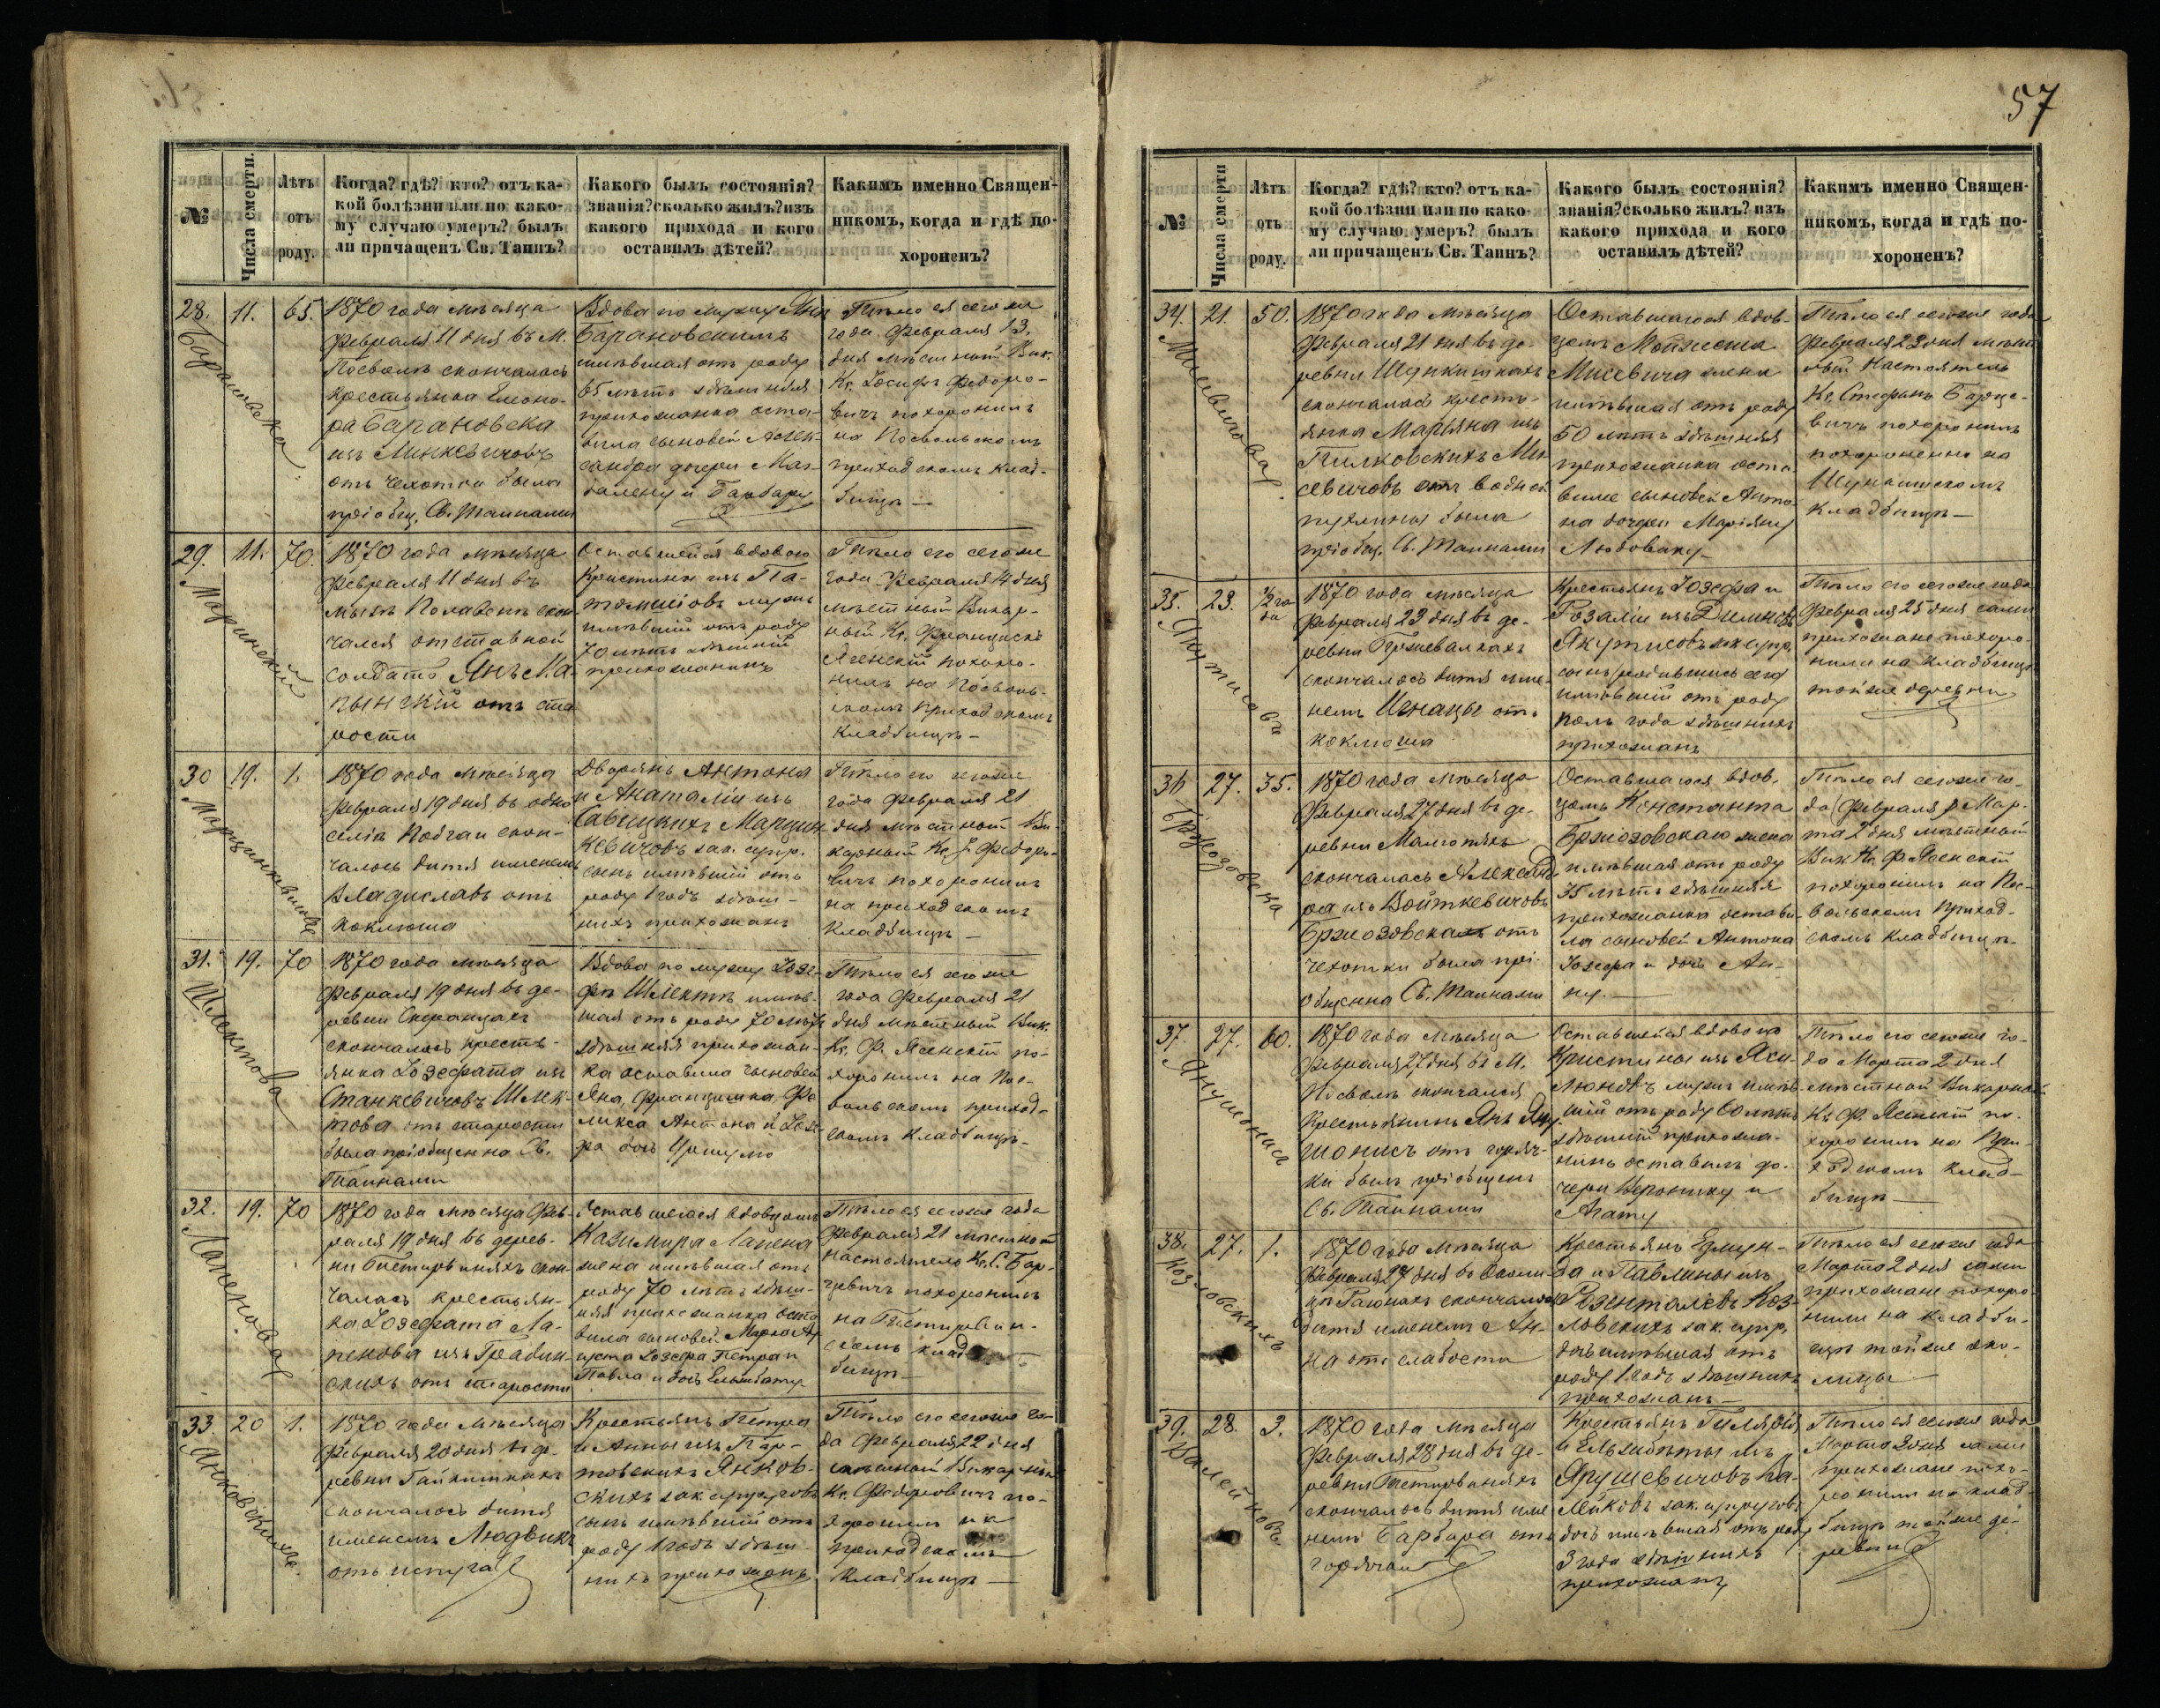 57
№
Числа смерти.
Лѣтъ
отъ
роду.
Когда? гдѣ? кто? отъ ка-
кой болѣзни или по како-
му случаю умеръ? былъ
ли причащенъ Св. Таинъ?
Какого былъ состоянія?
званія? сколько жилъ? изъ
какого прихода и кого
оставилъ дѣтей?
Какимъ именно Священ-
никомъ, когда и гдѣ по-
хороненъ?
28.
Барановска
11.
65.
1870 года мѣсяца
Февраля 11 дня въ М.
Посволѣ скончалась
крестьянка Елеоно-
ра Барановска
изъ Минкевичовъ
отъ чехотки была
пріобщ. Св. Тайнами
Вдова по мужу
Барановскимъ
имѣвшая отъ роду
65 лѣтъ здѣшняя
прихожанка оста-
вила сыновей
дочери Маг-
далену и Барбару
Тѣло ея сегоже
года Февраля 13
дня мѣстный Вик.
Кс. Іосифъ Федоро-
вичъ похоронилъ
на Посвольскомъ
приходскомъ клад-
бищѣ
29.
11.
70.
1870 года мѣсяца
Февраля 11 дня въ
скон-
чался отставной
солдатъ Янъ Ма-
отъ ста
рости
Оставшейся вдовою
Кристины изъ
мужъ
имѣвшій отъ роду
70 лѣтъ здѣшній
прихожанинъ
Тѣло его сегоже
года Февраля 14 дня
мѣстный Викар-
ный Кс. Францискъ
Ясенскій похоро-
нилъ на Посволь-
скомъ приходскомъ
кладбищѣ
30
Марцинкевичовъ
19.
1.
1870 года мѣсяца
Февраля 19 дня въ одно
селіи скон-
чалось дитя именемъ
Владиславъ отъ
коклюша
Дворянъ Антона
и Анаталіи изъ
Савицкихъ Марцин-
кевичовъ зак. супр.
сынъ имѣвшій отъ
роду 1 годъ здѣш-
нихъ прихожанъ
Тѣло его сегоже
года Февраля 21
дня мѣстный Ви-
карный Кс. І. Федоро-
вичъ похоронилъ
на приходскомъ
кладбищѣ
31.
Шлектова
19.
70
1870 года мѣсяца
Февраля 19 дня въ де-
ревни
скончалась кресть-
янка Іозефата изъ
Станкевичовъ Шлек-
това отъ старости
была пріобщенна Св.
Тайнами
Вдова по мужу Іозе-
фѣ Шлектѣ имѣв-
шая отъ роду 70 лѣтъ
здѣшняя прихожан-
ка оставила сыновей
Яна, Францишка, Фе
ликса Антона и Іозе-
фа дочь Уршулю
Тѣло ея сегоже
года Февраля 21
дня мѣстный Вик.
Кс. Ф. Ясенскій по-
хоронилъ на Пос-
вольскомъ приход-
скомъ кладбищѣ
32.
Лапенова
19.
70
1870 года мѣсяца Фев-
раля 19 дня въ дерев-
ни скон-
чалась крестьян-
ка Іозефата Ла-
пенова изъ Грабин-
скихъ отъ старости
Оставшегося вдовцомъ
Казимира Лапена
жена имѣвшая отъ
роду 70 лѣтъ здѣш-
няя прихожанка оста
вила сыновей
Іозефа Петра и
Павла и дочь Ельжбету
Тѣло ея сегоже года
Февраля 21 мѣстной
настоятель Кс. С. Бар-
цевичъ похоронилъ
на
скомъ клад
бищѣ
33.
Янковскихъ
20
1.
1870 года мѣсяца
Февраля 20 дня въ де-
ревни
скончалось дитя
именемъ Людвикъ
отъ испуга
Крестьянъ Петра
и Анны изъ
Янков-
скихъ зак. супруговъ
сынъ имѣвшій отъ
роду 1 годъ здѣш-
нихъ прихожанъ
Тѣло его сегоже го-
да Февраля 22 дня
мѣстной Викарный
Кс. Федоровичъ по-
хоронилъ на
приходскомъ
кладбищѣ
№
Числа смерти
Лѣтъ
отъ
роду.
Когда? гдѣ? кто? отъ ка-
кой болѣзни или по како-
му случаю умеръ? былъ
ли причащенъ Св. Таинъ?
Какого былъ состоянія?
званія? сколько жилъ? изъ
какого прихода и кого
оставилъ дѣтей?
Какимъ именно Священ-
никомъ, когда и гдѣ по-
хороненъ?
34.
21.
50.
1870 года мѣсяца
Февраля 21 дня въ де-
ревни
скончалась кресть-
янка Марьяна изъ
отъ водной
пухлины была
пріобщ. Св. Тайнами
Оставшагося вдов-
цемъ
жена
имѣвшая отъ роду
50 лѣтъ здѣшняя
прихожанка оста-
вила сыновей Анто-
на дочери Маріяну
Тѣло ея сегоже года
Февраля 23 дня мѣст
ный Настоятель
Кс. Стефанъ Барце-
вичъ похоронилъ
похороненно на
кладбищѣ
35.
23.
½ го
да
1870 года мѣсяца
Февраля 23 дня въ де-
ревни
скончалось дитя име-
немъ Игнацы отъ
коклюша
Крестьянъ Іозефа и
Розаліи изъ
зак. супр.
сынъ
имѣвшій отъ роду
полъ года здѣшнихъ
прихожанъ
Тѣло его сегоже года
Февраля 25 дня сами
прихожане похоро-
нили на кладбищѣ
тойже деревни
36
Бржозовска
27.
35.
1870 года мѣсяца
Февраля 27 дня въ де-
ревни
скончалась Александ-
ра изъ Войткевичовъ
Бржозовска отъ
чехотки была прі-
общенна Св. Тайнами
Оставшагося вдов-
цемъ Константа
Бржозовскаго жена
имѣвшая отъ роду
35 лѣтъ здѣшняя
прихожанка остави-
ла сыновей Антона
Іозефа и дочь Ан-
ну.
Тѣло ея сегоже го-
да Марта
2 дня мѣстный
Вик. Кс. Ф. Ясенскій
похоронилъ на Пос-
вольскомъ приход-
скомъ кладбищѣ
37.
Янушонисъ
27.
60.
1870 года мѣсяца
Февраля 27 дня въ М.
Посволѣ скончался
крестьянинъ Янъ Яну-
шонисъ отъ горяч-
ки былъ пріобщенъ
Св. Тайнами
Оставшейся вдовою
Кристины изъ
мужъ имѣв-
шій отъ роду 60 лѣтъ
здѣшній прихожа-
нинъ оставилъ до-
чери Веронику и
Агату
Тѣло его сегоже го-
да Марта 2 дня
мѣстной Викарный
Кс. Ф. Ясенскій по-
хоронилъ на При-
ходскомъ клад-
бищѣ
38.
Козловскихъ
27.
1.
1870 года мѣсяца
Февраля 27 дня въ Околи-
цѣ скончалось
дитя именемъ Ан-
на отъ слабости
Крестьянъ Едмун-
да и Павлины изъ
Розенталевъ Коз-
ловскихъ зак. супр.
дочь имѣвшая отъ
роду 1 годъ здѣшнихъ
прихожанъ
Тѣло ея сегоже года
Марта 2 дня сами
прихожане похоро-
нили на кладби-
щѣ тойже око-
лицы
39.
28.
3.
1870 года мѣсяца
Февраля 28 дня въ де-
ревни
скончалось дитя име
немъ Барбара отъ
горячки
Крестьянъ
и Ельжбеты изъ
Ярушевичовъ
зак. супруговъ
дочь имѣвшая отъ роду
3 года здѣшнихъ
прихожанъ
Тѣло ея сегоже года
Марта 3 дня сами
прихожане похо-
ронили на клад-
бищѣ тойже де-
ревни